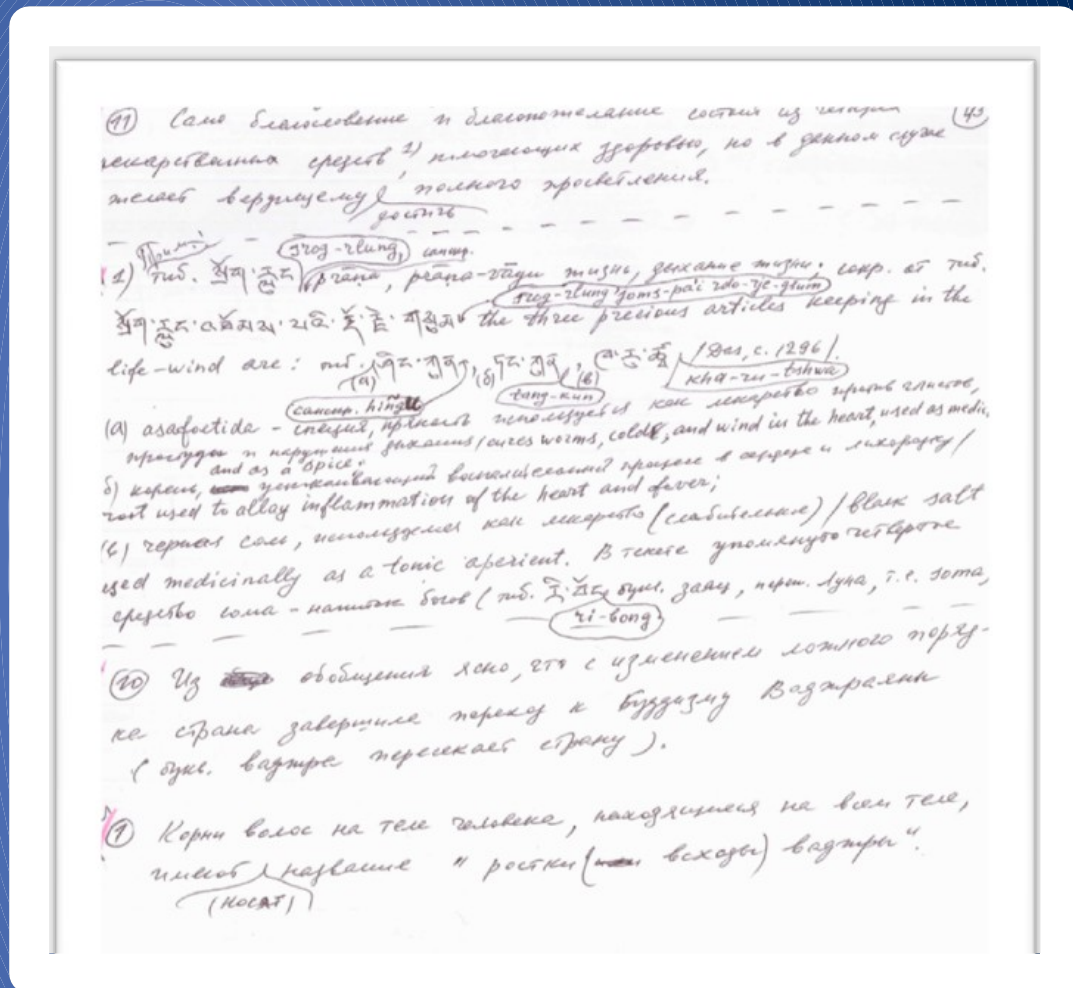 ⑪ Само благословение и благопожелание состоит из четырех ㊸
лекарственных средств 1) помогающих здоровью, но в данном случае
желает верующему полного просветления.
достичь
srog-rlung, санскр.
1) тиб. སྲོག་རླུང prāṇa, prāṇa-vāyu жизнь, дыхание жизни; сокр. от тиб.
srog-rlung 'joms-pa'i rdo-rje-gsum
the three precious articles keeping in the
life-wind are: тиб. (а) (б) (в) /Das, с. 1296/.
kha-ru-tshwa
санскр. hiṅgu tang-kun
(а) asafoetida – специя, пряность используется как лекарство против глистов,
простуды и нарушения дыхания/cures worms, colds, and wind in the heart, used as medi.
and as a spice.
б) корень, успокаивающий воспалительный процесс в сердце и лихорадку/
root used to allay inflammation of the heart and fever;
(в) черная соль, используемая как лекарство (слабительное)/black salt
used medicinally as a tonic aperient. В тексте упомянуто четвертое
средство сома – напиток богов (тиб. རི་བོང, букв. заяц, перен. Луна, т.е. soma,
ri-bong
⑩ Из обобщения ясно, что с изменением ложного поряд-
ка страна завершила переход к Буддизму Ваджраяны
(букв. ваджра пересекает страну).
⑨ Корни волос на теле человека, находящиеся на всем теле,
имеют название "ростки (всходы) ваджры".
(носят)